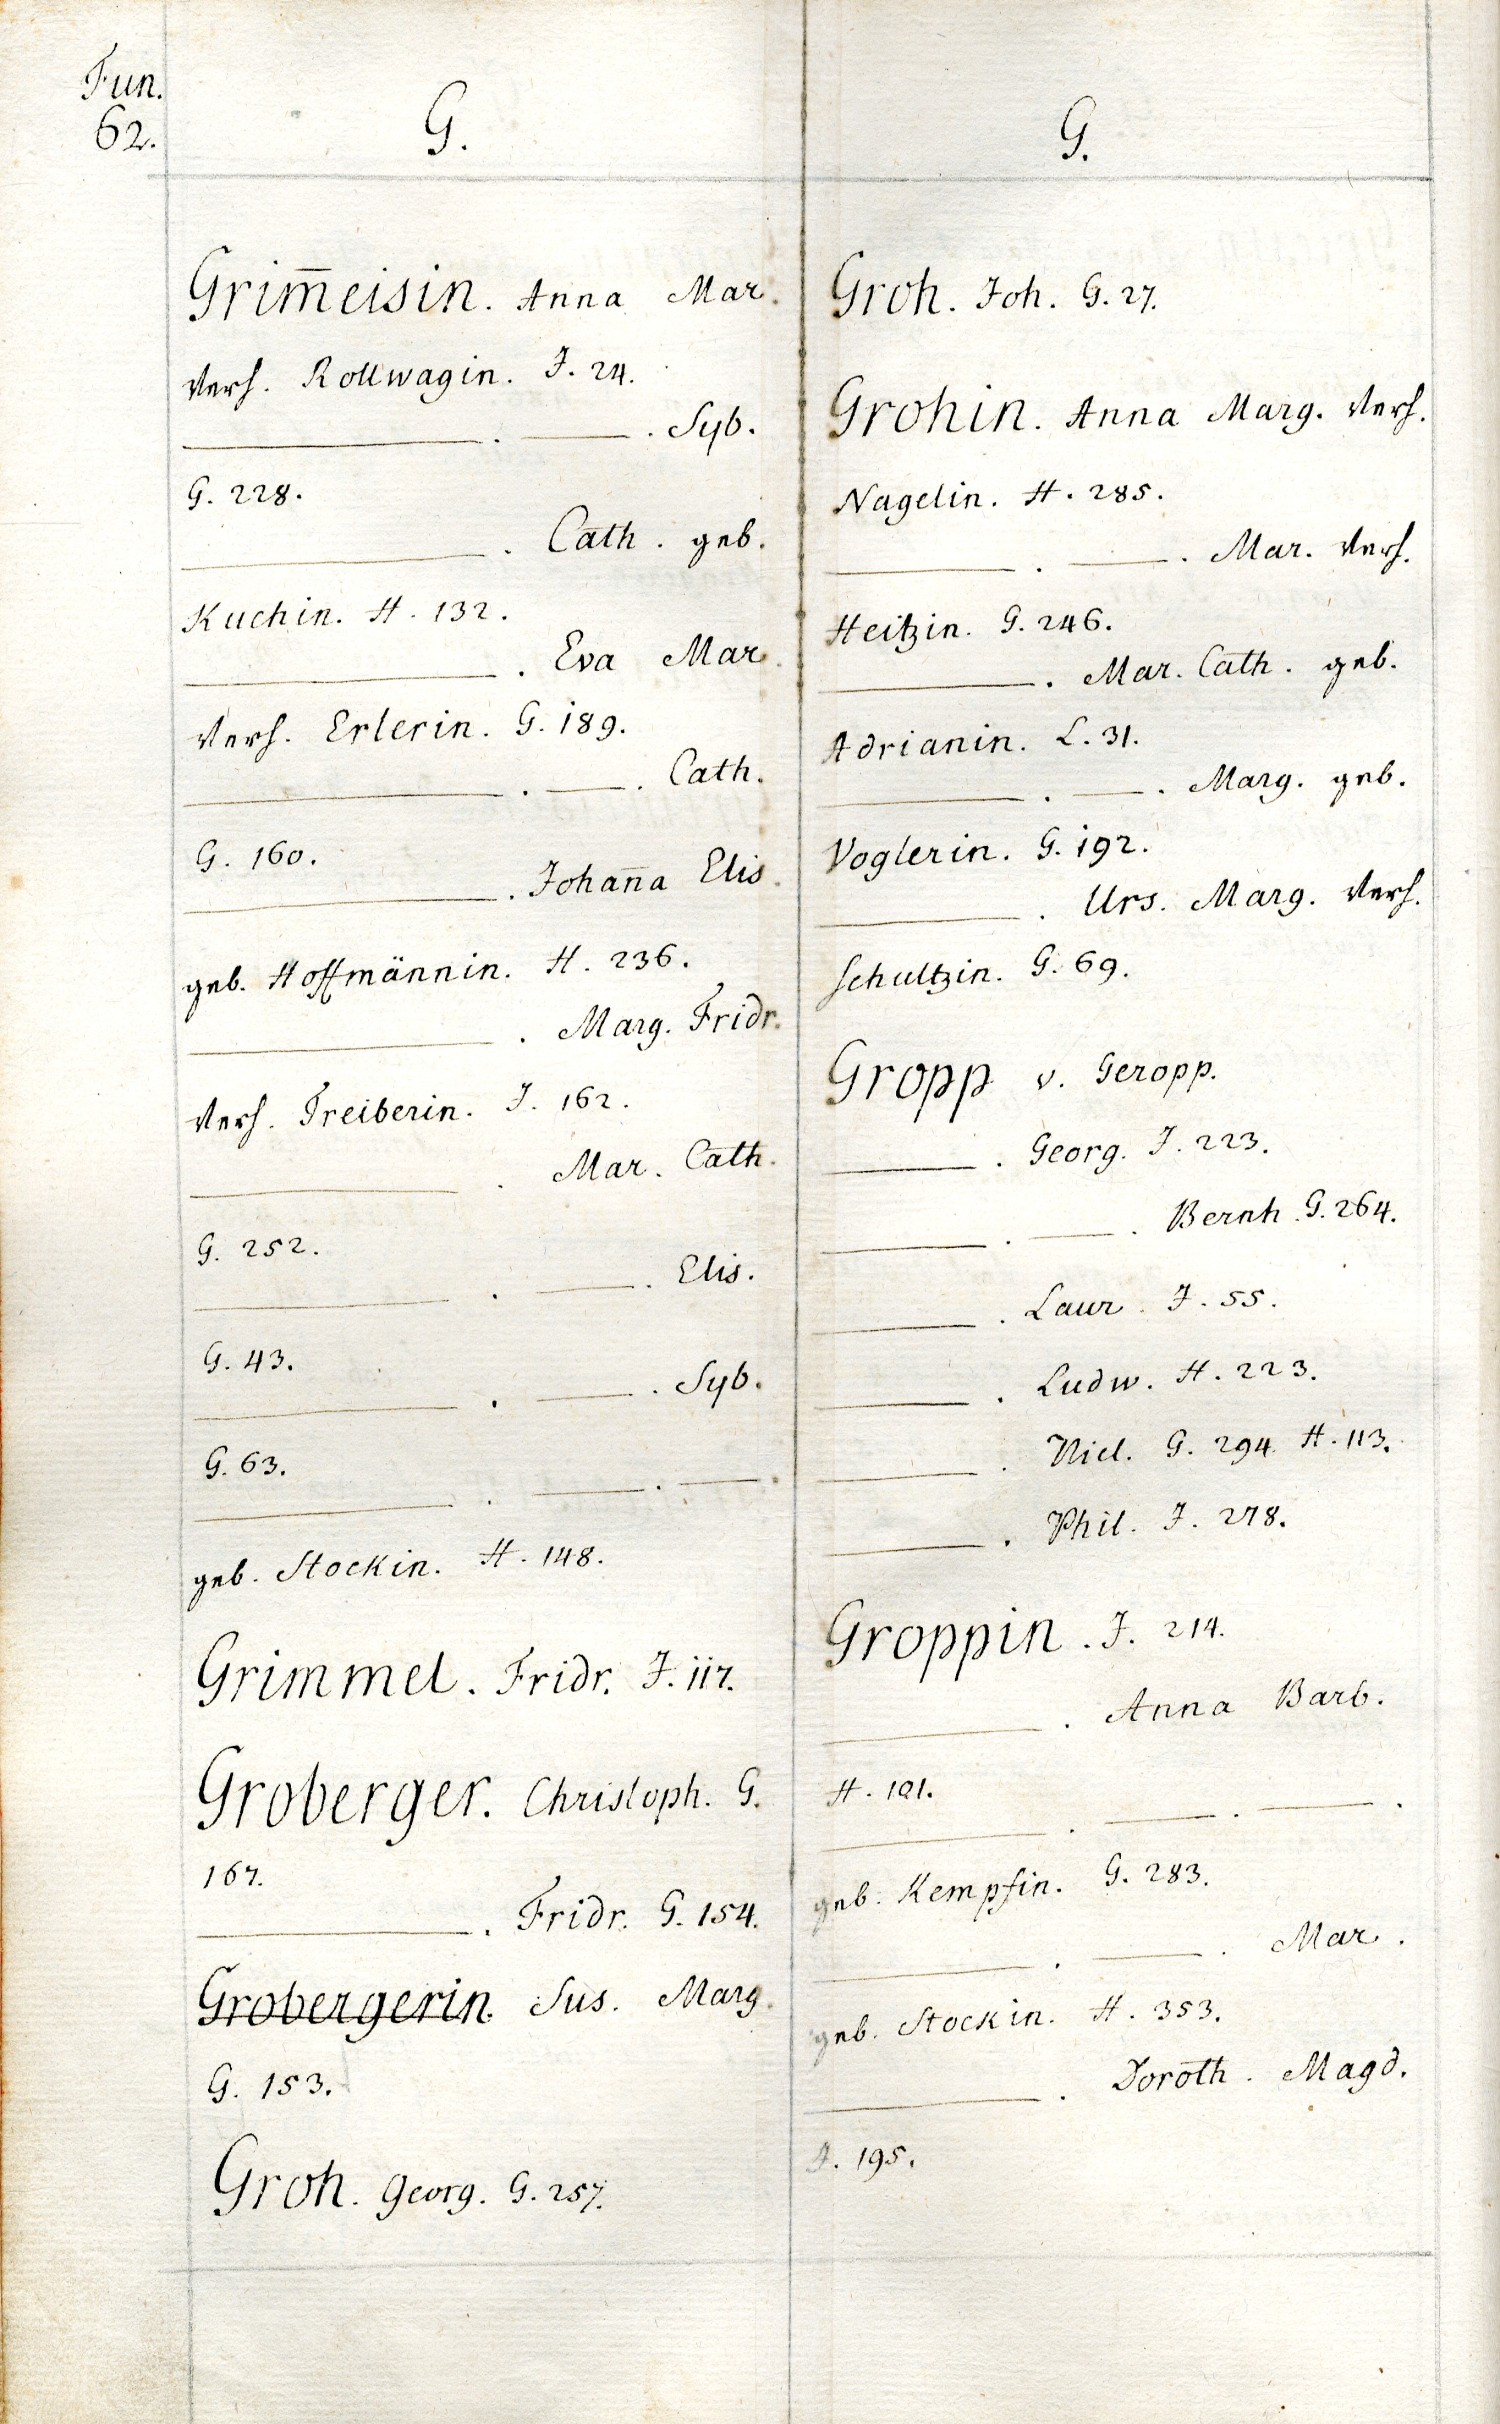 Fun.
62.
G.
Grim̄eisin. Anna Mar.
Verh. Rollwagin. J. 24.
———. ———. Syb.
G. 228.
———. Cath. geb.
Kuchin. H. 132.
———. Eva Mar.
Verh. Erlerin. G. 189.
———. ———. Cath.
G. 160.
———. Johan̄a Elis.
geb. Hoffmännin. H. 236.
———. Marg. Fridr.
Verh. Treiberin. J. 162.
———. Mar. Cath.
G. 252.
———. ———. Elis.
G. 43.
———. ———. Syb.
G. 63.
———. ———. ———.
geb. Stockin. H. 148.
Grimmel. Fridr. J. 117.
Groberger. Christoph. G.
167.
———. Fridr. G. 154.
Grobergerin. Sus. Marg.
G. 153.
Groh. Georg. G. 257.
G.
Groh. Joh. G. 27.
Grohin. Anna Marg. Verh.
Nagelin. H. 285.
———. ———. Mar. Verh.
Heitzin. G. 246.
———. Mar. Cath. geb.
Adrianin. L. 31.
———. ———. Marg. geb.
Voglerin. G. 192.
———. Urs. Marg. Verh.
Schultzin. G. 69.
Gropp v. Geropp.
———. Georg. J. 223.
———. ———. Bernh. G. 264.
———. Laur. J. 55.
———. Ludw. H. 223.
———. Nicl. G. 294. H. 113.
———. Phil. J. 278.
Groppin. J. 214.
———. Anna Barb.
H. 101.
———. ———. ———.
geb. Kempfin. G. 283.
———. ———. Mar.
geb. Stockin. H. 353.
———. Doroth. Magd.
J. 195.